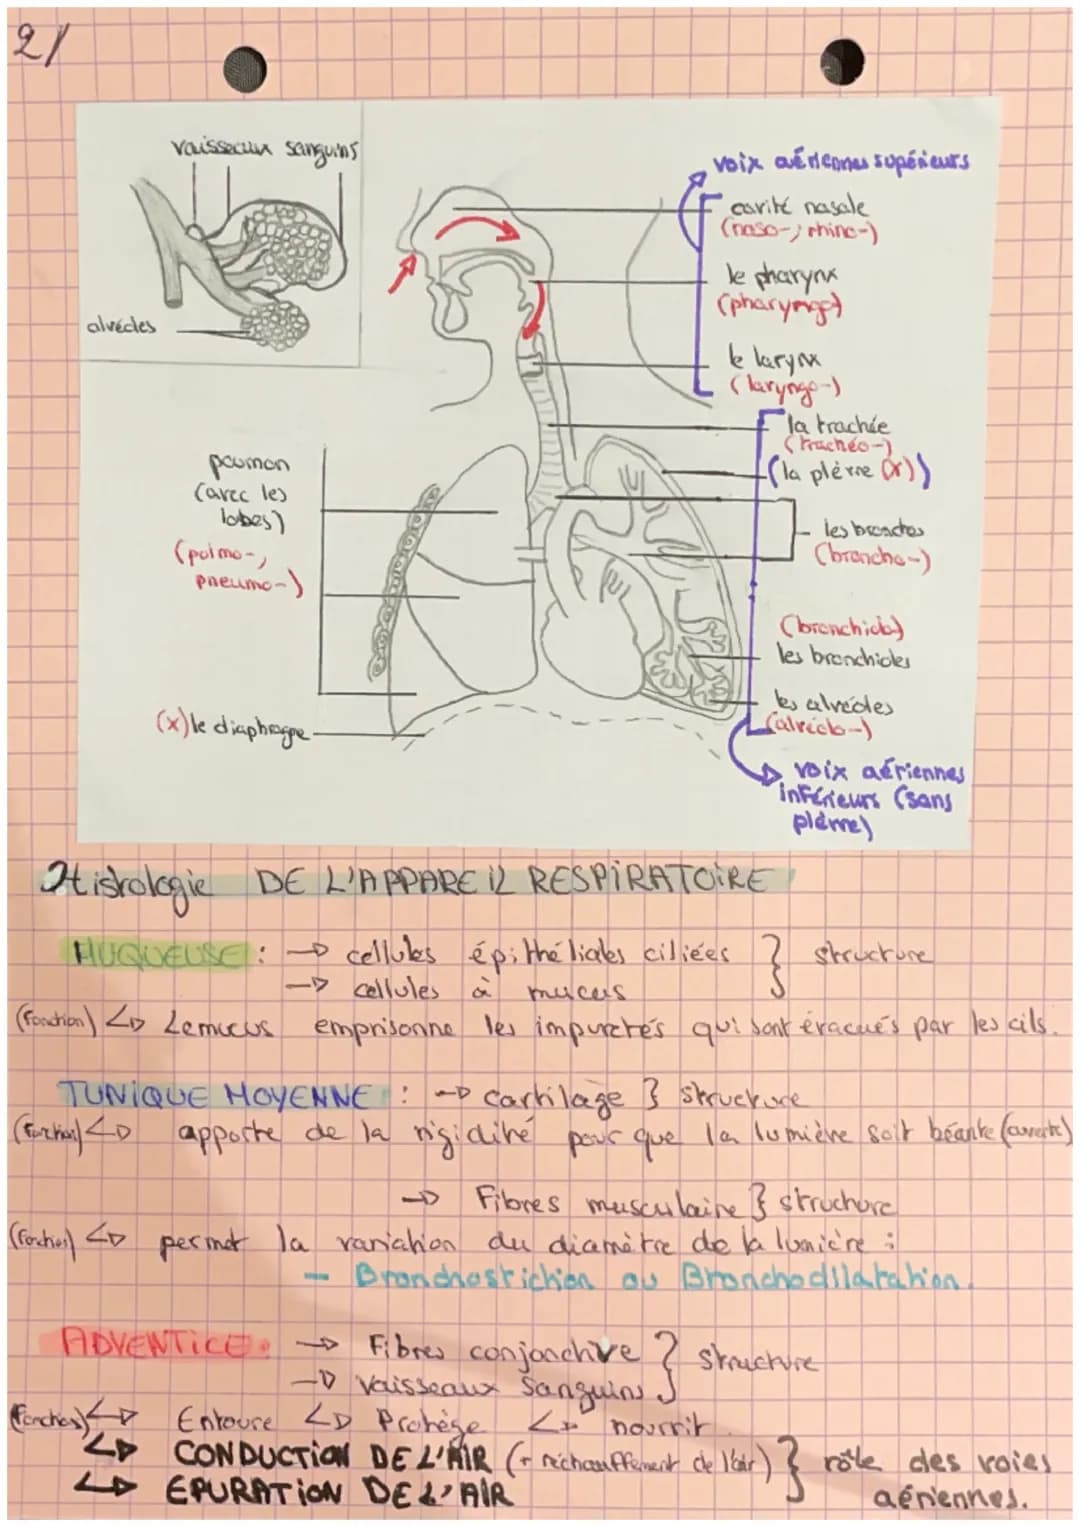 2/
vaisseaux sanguins
alvéoles
voix aériennes supérieurs
cavité nasale
(naso-; rhino-)
le pharynx
(pharyngo)
le larynx
(laryngo-)
la trachée
(trachéo-)
(la plèvre (x))
les bronches
(broncho-)
(bronchiolo)
les bronchioles
les alvéoles
(alvéolo-)
voix aériennes
inférieurs (sans
plèvre)
poumon
(avec les
lobes)
(pulmo-,
pneumo-)
(x) le diaphragme
Histologie DE L'APPAREIL RESPIRATOIRE
MUQUEUSE : → cellules épithéliales ciliées } structure
→ cellules à mucus
(fonction) ↳ Le mucus emprisonne les impuretés qui sont évacués par les cils.
TUNIQUE MOYENNE : → cartilage } structure
(fonction) ↳ apporte de la rigidité pour que la lumière soit béante (ouverte)
→ Fibres musculaire } structure
(fonction) ↳ permet la variation du diamètre de la lumière :
- Bronchostriction ou Bronchodilatation.
ADVENTICE : → Fibres conjonctive } structure
→ vaisseaux sanguins
(fonction) ↳ Entoure ↳ Protège ↳ nourrit
↳ CONDUCTION DE L'AIR (+ réchauffement de l'air) } rôle des voies
↳ EPURATION DE L'AIR aériennes.